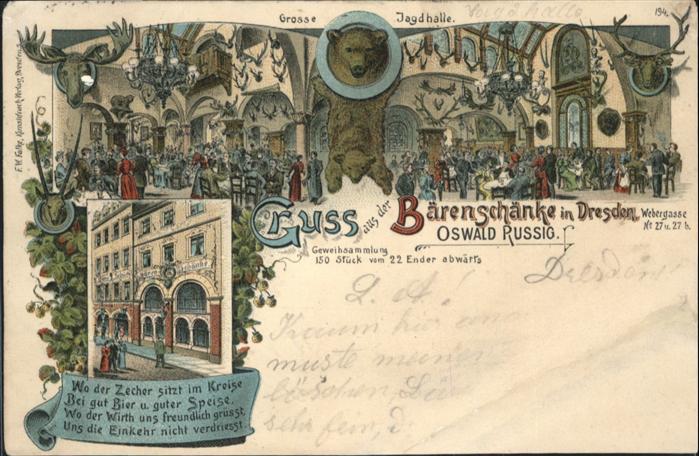 Grosse Jagdhalle.
194.
F.W. Falke, Kunstdruck-Verlag, Dresden.
Gruss aus der Bärenschänke in Dresden,
Webergasse
No 27 u. 27 b.
OSWALD RUSSIG.
Geweihsammlung
150 Stück vom 22 Ender abwärts
Dresden
L. A!
Kaum hier
musste meinen
löschen,
sehr fein,
Wo der Zecher sitzt im Kreise
Bei gut Bier u. guter Speise,
Wo der Wirth uns freundlich grüsst,
Uns die Einkehr nicht verdriesst.